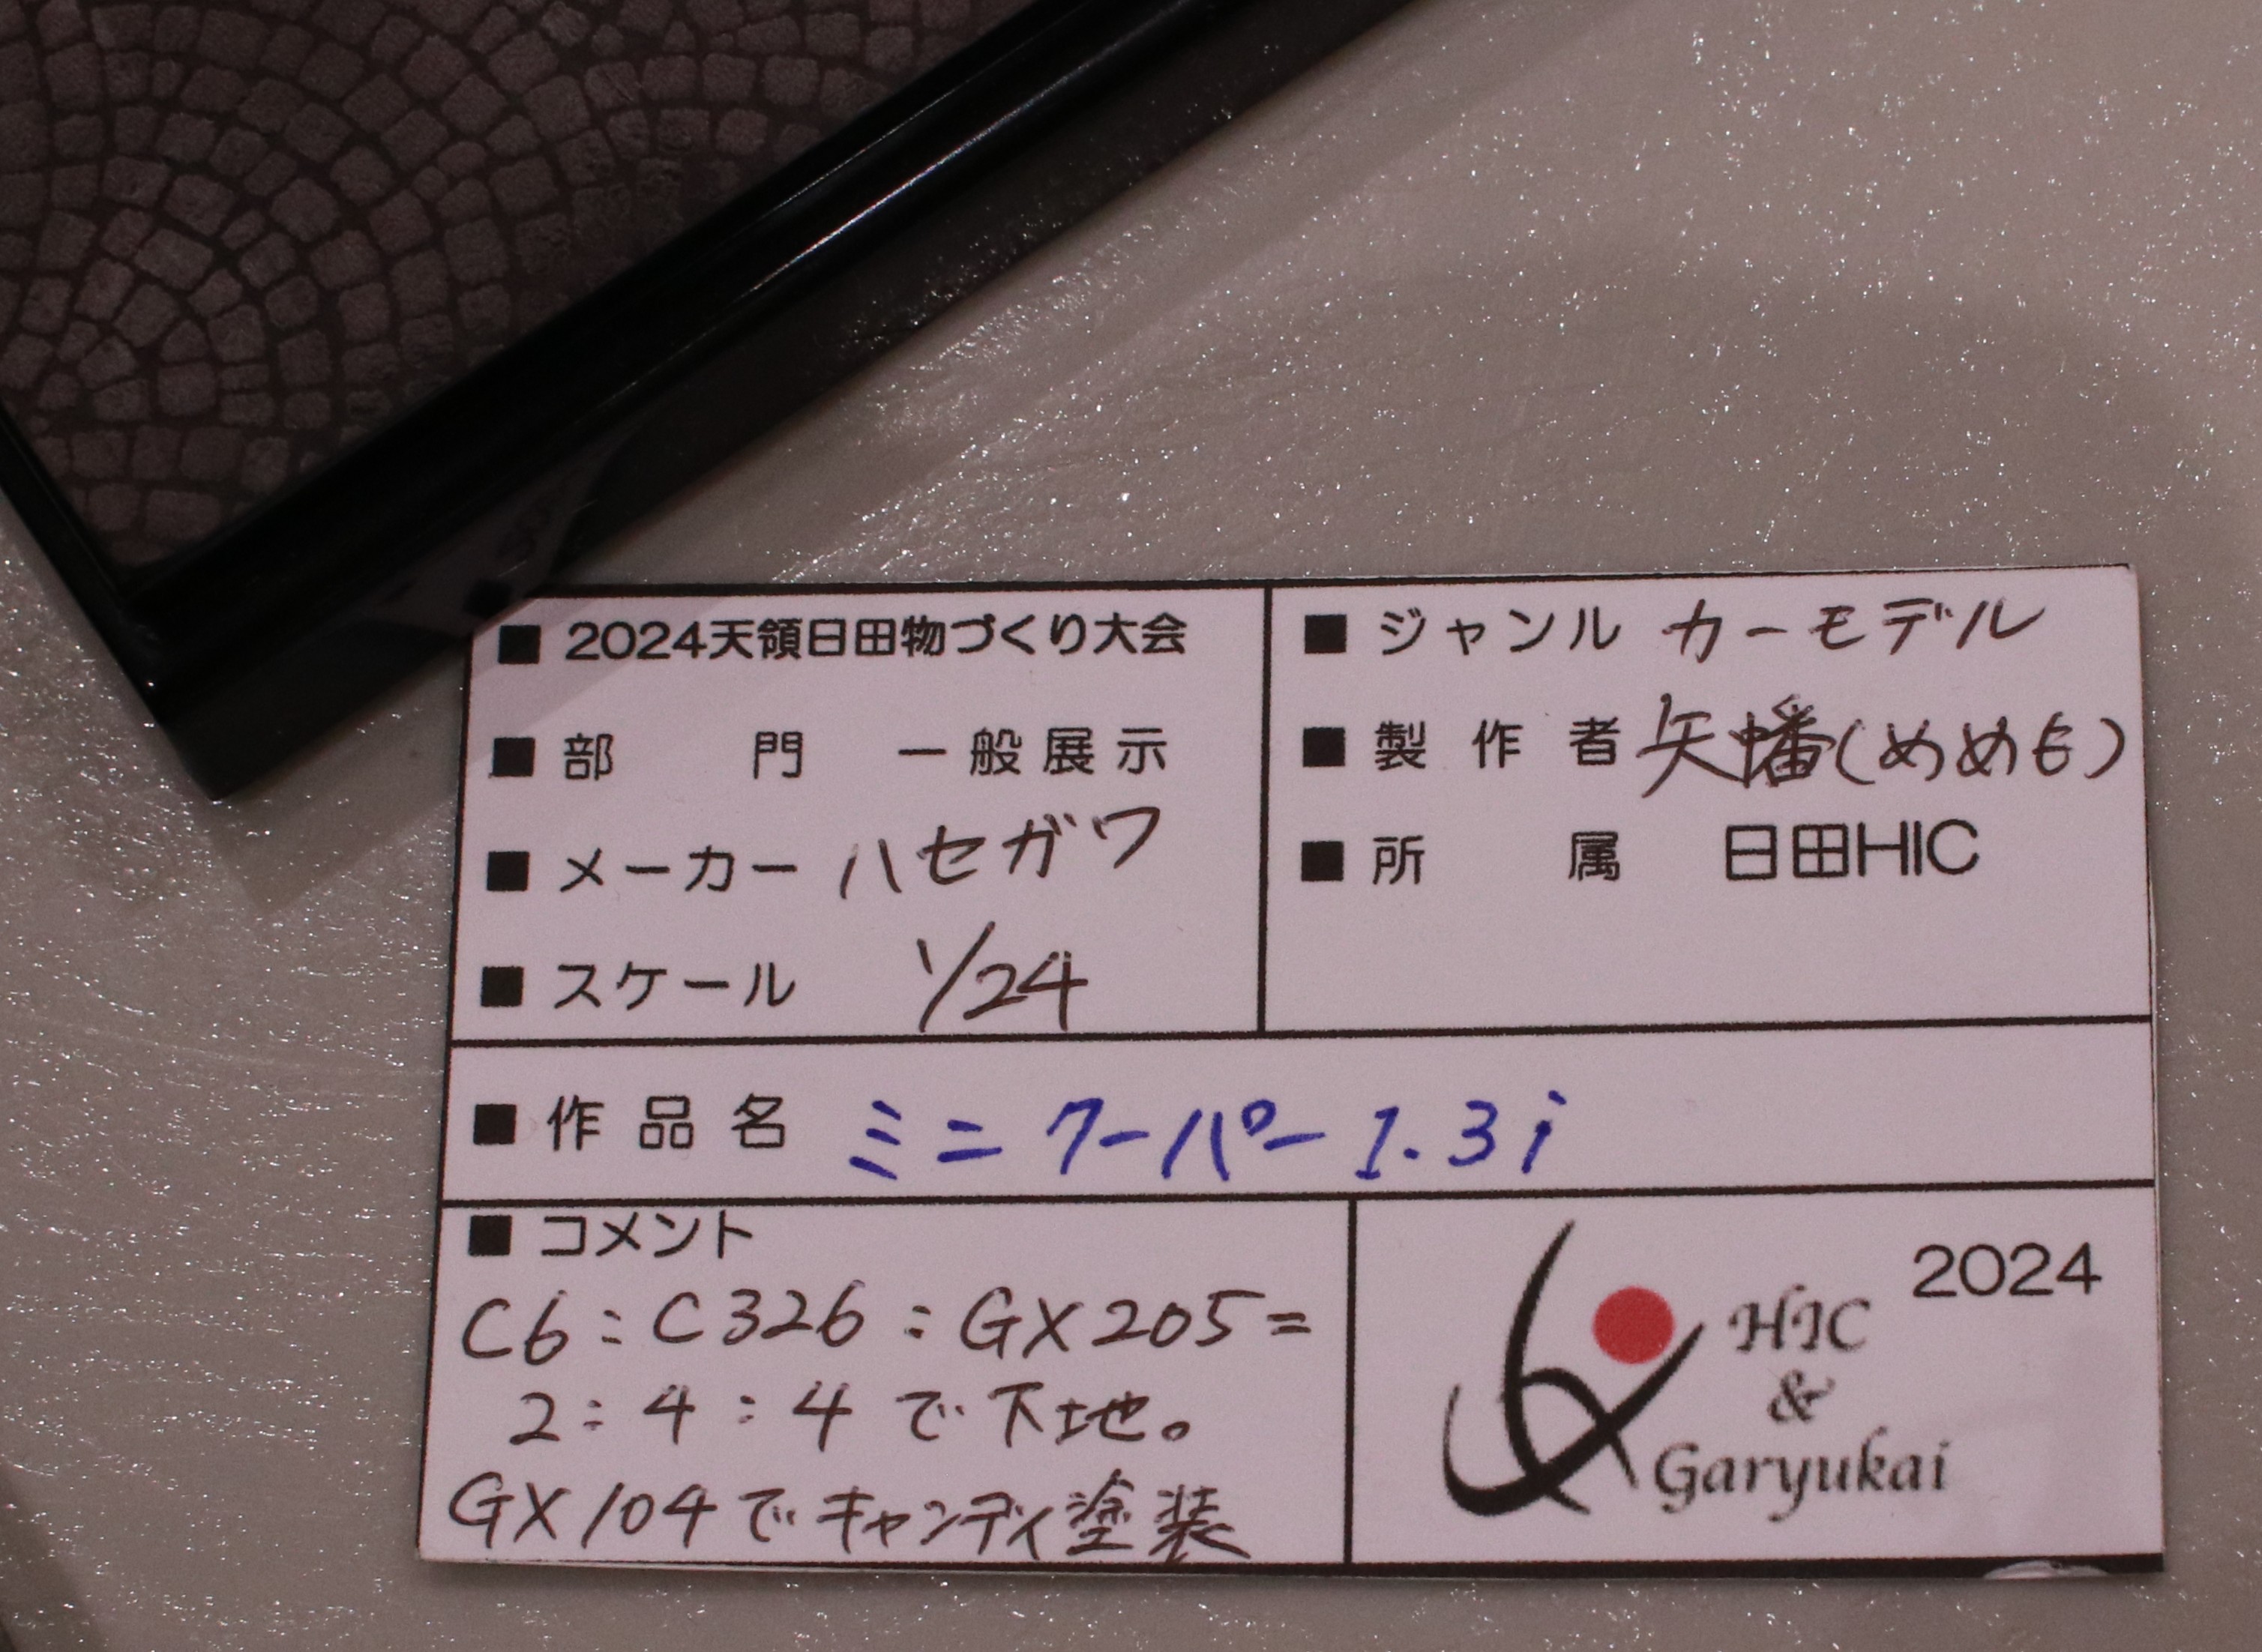 ■ 2024天領日田物づくり大会
■ 部門 一般展示
■ メーカー ハセガワ
■ スケール 1/24
■ ジャンル カーモデル
■ 製作者 矢幡(めめも)
■ 所属 日田HIC
■ 作品名 ミニ クーパー 1.3i
■ コメント
C6:C326:GX205=
2:4:4で下地。
GX104でキャンディ塗装
2024
HIC
&
Garyukai